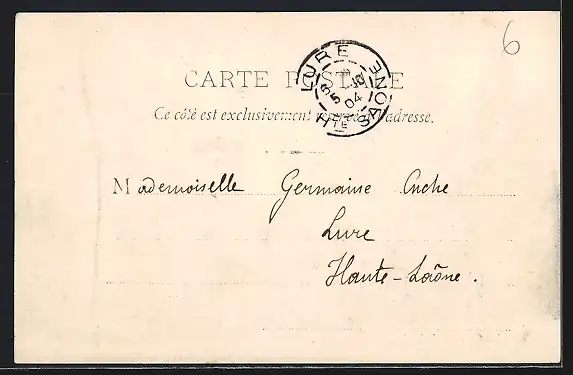 6
LURE
5
04
HTE SAONE
CARTE POSTALE
Ce côté est exclusivement réservé à l'adresse.
Mademoiselle Germaine Cuche
Lure
Haute-Saône.